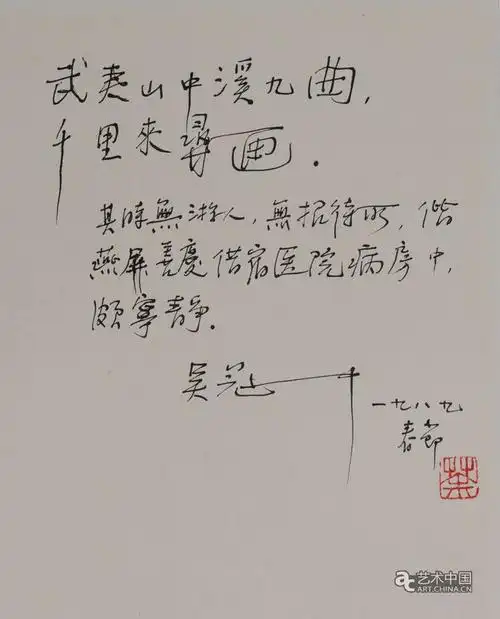 武夷山中溪九曲，
千里來尋画．
其時無游人，無招待所，偕
燕屏善慶借宿医院病房中，
頗寧静．
吴冠中
一九八九
春節
荼
艺术中国
ART.CHINA.CN